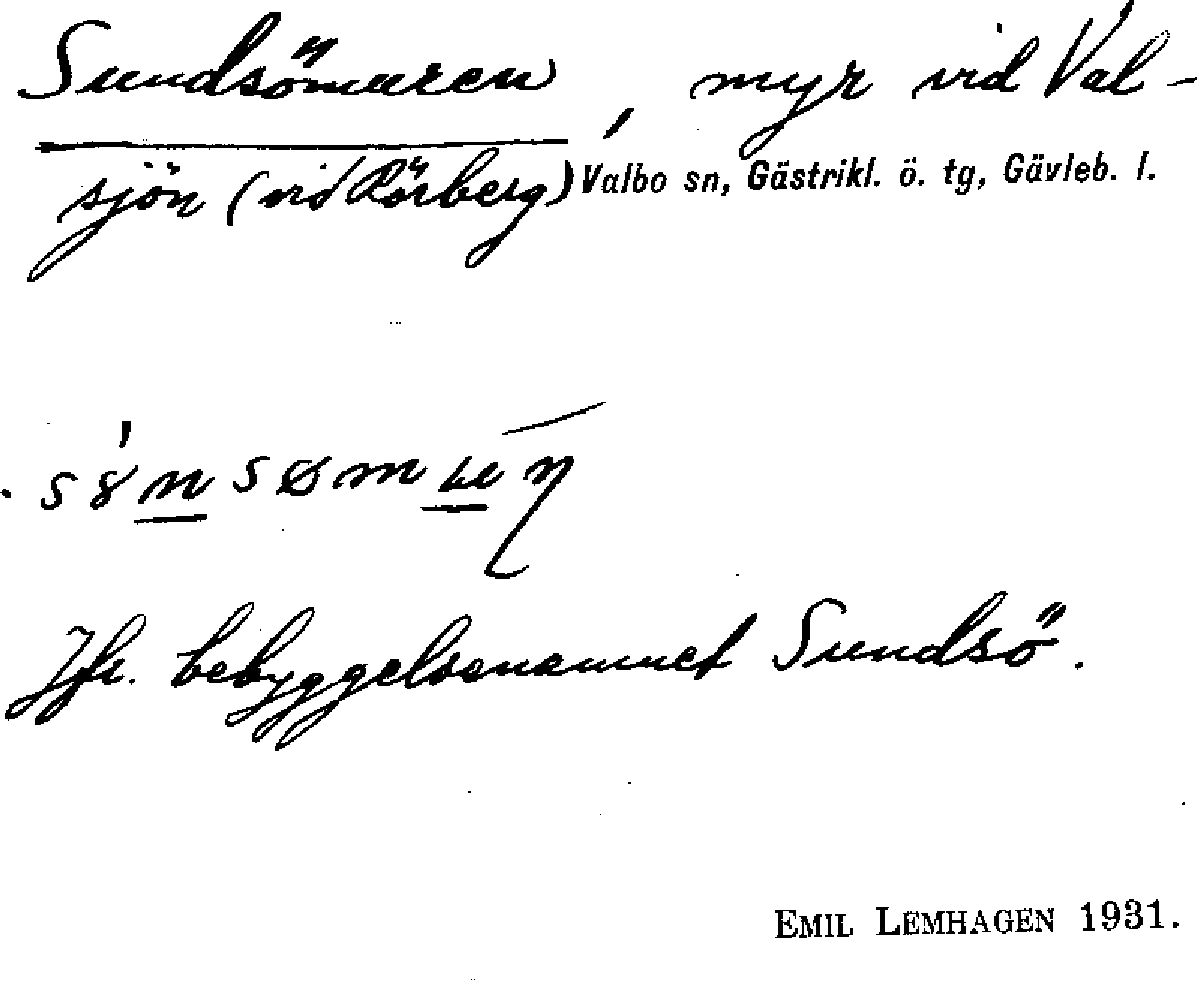 Sundsömuren, myr vid Val-
sjön (vid Rörberg) Valbo sn, Gästrikl. ö. tg, Gävleb. l.
Jfr. bebyggelsenamnet Sundsö.
EMIL LEMHAGEN 1931.